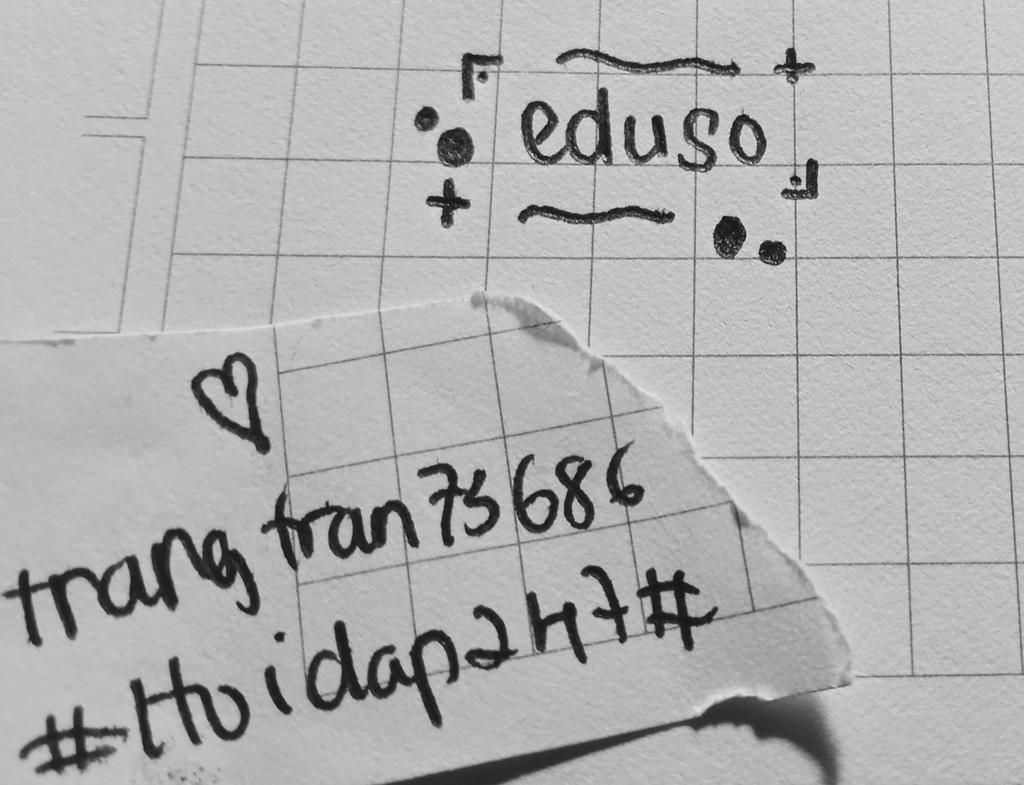 eduso
trangtran75686
#Hoidap247#